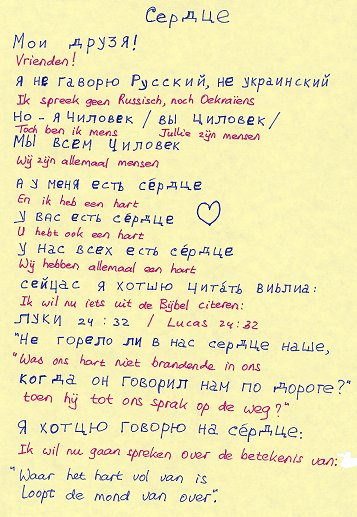 Сердце
Мои друзя!
Vrienden!
я не гаворю Русский, не украинский
Ik spreek geen Russisch, noch Oekraïens
Но - я чиловек / вы циловек/
Toch ben ik mens Jullie zijn mensen
Мы всем чиловек
Wij zijn allemaal mensen
а у меня есть се́рдце
En ik heb een hart
у вас есть се́рдце
U hebt ook een hart
у нас всех есть се́рдце
Wij hebben allemaal een hart
сейцас я хотшю цита́ть виблиа:
Ik wil nu iets uit de Bijbel citeren:
Луки 24 : 32 / Lucas 24:32
"Не горело ли в нас сердце наше,
"Was ons hart niet brandende in ons
когда он говорил нам по дороге?"
toen hij tot ons sprak op de weg?"
Я хотцю говорю на се́рдце:
Ik wil nu gaan spreken over de betekenis van:
"Waar het hart vol van is
loopt de mond van over".